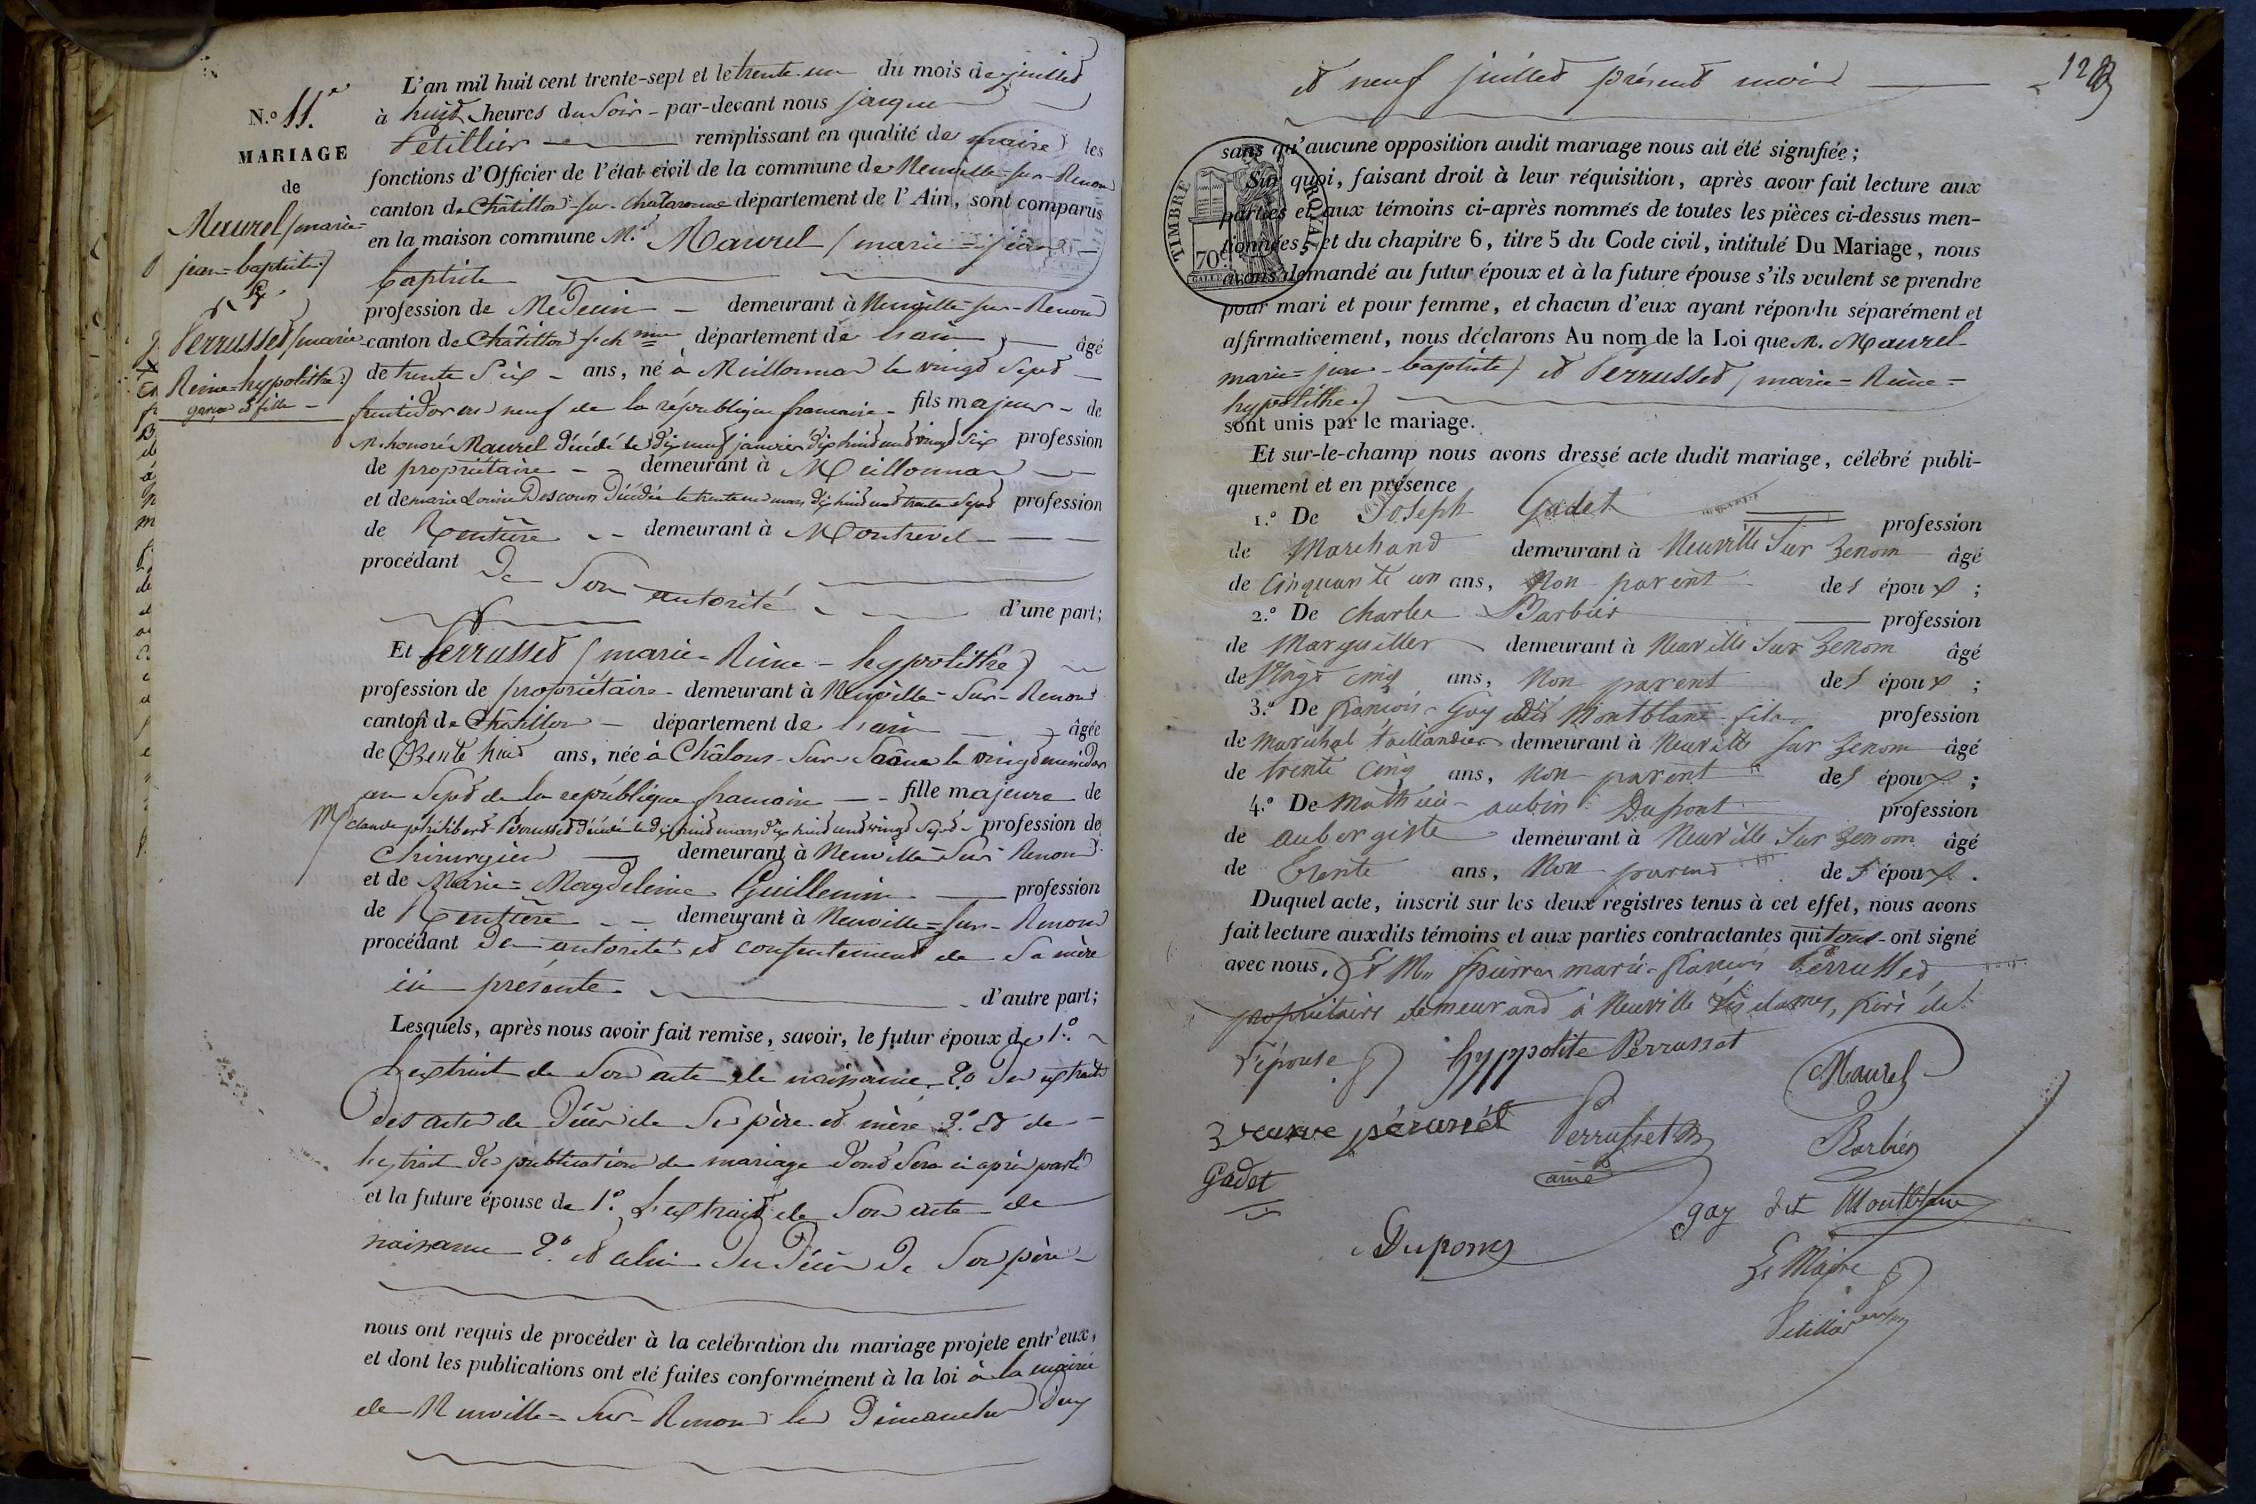 N.º 11.e
MARIAGE
de
Maurel (marie=
jean=baptiste)
&
Perrusset (marie
Reine=hypolithe)
garçon et fille -
L'an mil huit cent trente-sept et le trente un du mois de juillet
à huit heures du Soir - par-devant nous jacques
Petillier remplissant en qualité de maire les
fonctions d'Officier de l'état civil de la commune de Neuville-sur-Renom
canton de Châtillon sur chalaronne département de l'Ain, sont comparus
en la maison commune M.r Maurel (marie=jean=
baptiste
profession de Medecin - demeurant à Neuville-sur-Renom
canton de Châtillon département de l'ain âgé
de trente Six - ans, né à Meillonnas le vingt Sept
fructidor an neuf de la république francaise - fils majeur - de
M. honoré Maurel décédé le dix neuf janvier dix huit cent vingt Six profession
de propriétaire - demeurant à Meillonnas
et de marie Louise Descours décédée le trente un mars dix huit cent trente Sept profession
de Rentière - - demeurant à Montrevel - - -
procédant de Son autorité
d'une part;
Et Perrusset (marie-Reine-hypolithe)
profession de propriétaire - demeurant à Neuville-Sur-Renom
canton de Châtillon - département de l'ain âgée
de Trente huit ans, née à Châlons-Sur-Saône le vingt messidor
an Sept de la république francaise - - fille majeure de
M.r claude philibert Perrusset décédé le dix huit mars dix huit cent vingt Sept - profession de
Chirurgien demeurant à Neuville-Sur-Renom
et de Marie=Magdeleine Guillemin profession
de Rentière - - demeurant à Neuville=Sur-Renom
procédant de autorité et consentement de Sa mère
ici présente - d'autre part;
Lesquels, après nous avoir fait remise, savoir, le futur époux de 1.º
L'extrait de Son acte de naissance 2º Des extraits
des actes de Décès de Ses père et mère 3.º Et de
l'extrait de publication de mariage dont Sera ci après parlé
et la future épouse de 1.º L'extrait de Son acte de
naissance 2.º et celui du Décès de Son père
nous ont requis de procéder à la celébration du mariage projeté entr'eux,
et dont les publications ont été faites conformément à la loi à la mairie
de Neuville-Sur-Renom les Dimanches Deux
et neuf juillet présent mois
TIMBRE ROYAL
70c
sans qu'aucune opposition audit mariage nous ait été signifiée;
Sur quoi, faisant droit à leur réquisition, après avoir fait lecture aux
parties et aux témoins ci-après nommés de toutes les pièces ci-dessus men-
tionnées, et du chapitre 6, titre 5 du Code civil, intitulé Du Mariage, nous
avons demandé au futur époux et à la future épouse s'ils veulent se prendre
pour mari et pour femme, et chacun d'eux ayant répondu séparément et
affirmativement, nous déclarons Au nom de la Loi que M. Maurel
marie=jean-baptiste) et Perrusset (marie=Reine=
hypolithe)
sont unis par le mariage.
Et sur-le-champ nous avons dressé acte dudit mariage, célébré publi-
quement et en présence
1.º De Joseph Gadet profession
de Marchand demeurant à Neuville Sur Renom âgé
de Cinquante un ans, Non parent des époux;
2.º De Charles Barbier profession
de Marguiller demeurant à Neuville Sur Renom âgé
de Vingt cinq ans, Non parent des époux;
3.º De françois Gay dit Montblanc fils profession
de maréchal taillandier demeurant à Neuville Sur Renom âgé
de trente Cinq ans, Non parent des époux;
4.º De Mathieu - aubin Dupont profession
de aubergiste demeurant à Neuville Sur Renom âgé
de Trente ans, Non parent des époux.
Duquel acte, inscrit sur les deux registres tenus à cet effet, nous avons
fait lecture auxdits témoins et aux parties contractantes qui tous - ont signé
avec nous. Et Mr pierre marie françois Perrusset
propriétaire demeurand à Neuville les dames, frère de
l'épouse hyppolite Perrusset
Maurel
veuve péruset Perrusset
ainé
Barbier
Gadet
gay dit Montblanc
Dupont
Le Maire
Petillier